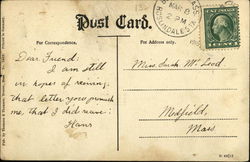 Post Card.
For Correspondence.
For Address only.
MAR 8
2 PM
ROSLINDALE STA.
Dear Friend:
I am still
in hopes of receiving
that letter you promised
me, that I did never:
Hans
Miss. Mc Leod
Medfield,
Mass